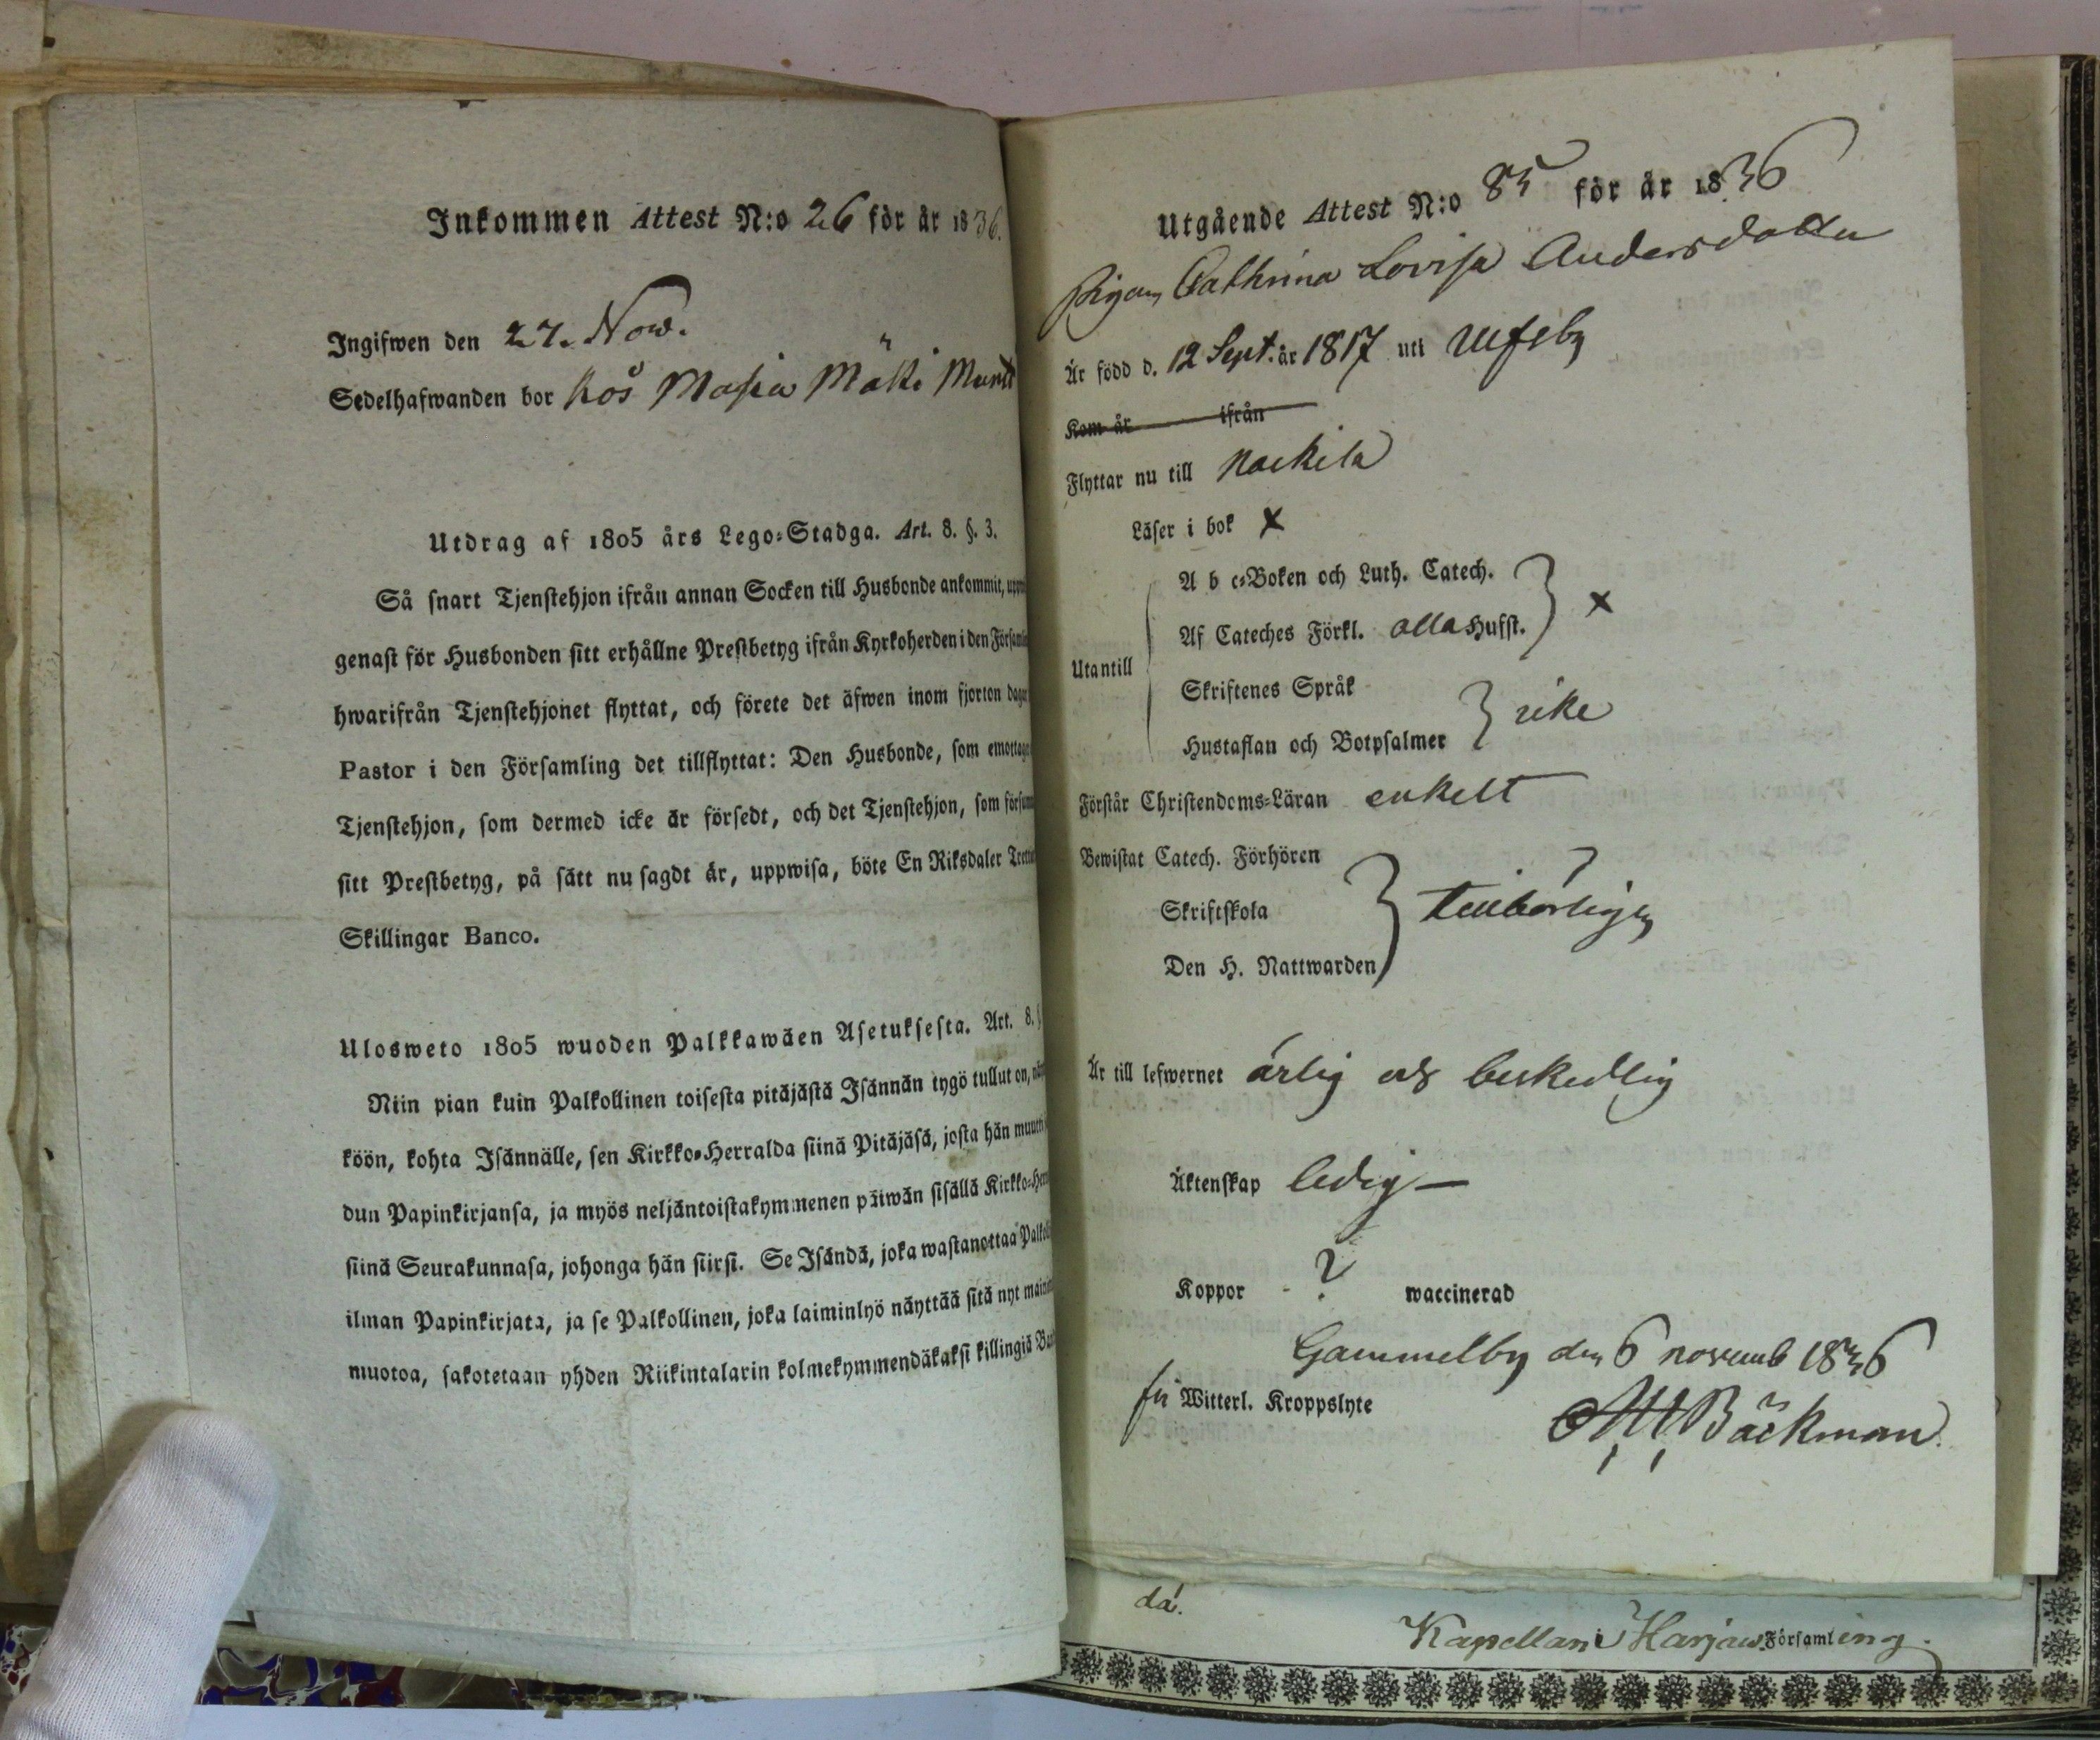 Inkommen Attest N:o 26 för år 1836.
Ingifwen den 27. Nov.
Sedelhafwanden bor hos Masia Mäki
Utdrag af 1805 års Lego-Stadga. Art. 8. §. 3.
Så snart Tjenstehjon ifrån annan Socken till Husbonde ankommit,
genast för Husbonden sitt erhållne Prestbetyg ifrån Kyrkoherden i den
hwarifrån Tjenstehjonet flyttat, och förete det äfwen inom fjorton
Pastor i den Församling det tillflyttat: Den Husbonde, som
Tjenstehjon, som dermed icke är försedt, och det Tjenstehjon, som
sitt Prestbetyg, på sätt nu sagdt är, uppwisa, böte En Riksdaler
Skillingar Banco.
Ulosweto 1805 wuoden Palkkawäen Asetuksesta. Art. 8.
Niin pian kuin Palkollinen toisesta pitäjästä Isännän tygö tullut on,
köön, kohta Isännälle, sen Kirkko-Herralda siinä Pitäjäsä, josta hän
dun Papinkirjansa, ja myös neljäntoistakymmenen päiwän sisällä
siinä Seurakunnasa, johonga hän siirsi. Se Isändä, joka wastanottaa
ilman Papinkirjata, ja se Palkollinen, joka laiminlyö näyttää sitä nyt
muotoa, sakotetaan yhden Riikintalarin kolmekymmendäkaksi killingiä
Utgående Attest N:o 85 för år 1836
Pigan Cathrina Lovisa Andersdotter
Är född d. 12 Sept. år 1817 uti Ulfsby
Kom år ifrån
Flyttar nu till Nackila
Läser i bok x
A b c-Boken och Luth. Catech.
Af Cateches Förkl. alla Hufst. x
Utantill
Skriftenes Språk
Hustaflan och Botpsalmer icke
Förstår Christendoms-Läran enkelt
Bewistat Catech. Förhören
Skriftskola tillbörligen
Den H. Nattwarden
Är till lefwernet ärlig och beskedlig
Äktenskap ledig —
Koppor - ? waccinerad
Gammelby den 6 novemb 1836
fri Witterl. Kroppslyte
Bäckman.
då.
Kapellan i Harjaw. Församling.